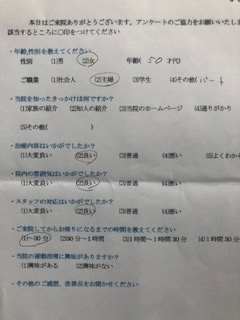 本日はご来院ありがとうございます。アンケートのご協力をお願いいたしま
該当するところに○印をつけてください
・年齢,性別を教えてください
性別 (1)男 (2)女 年齢( 50 才代)
ご職業 (1)社会人 (2)主婦 (3)学生 (4)その他(パート
・当院を知ったきっかけは何ですか?
(1)家族の紹介 (2)知人の紹介 (3)当院のホームページ (4)通りがかり
(5)その他( )
・治療内容はいかがでしたか?
(1)大変良い (2)良い (3)普通 (4)悪い (5)よくわから
・院内の雰囲気はいかがでしたか?
(1)大変良い (2)良い (3)普通 (4)悪い
・スタッフの対応はいかがでしたか?
(1)大変良い (2)良い (3)普通 (4)悪い
・ご来院してからお帰りになるまでの時間を教えてください
(1)~30分 (2)30分~1時間 (3)1時間~1時間30分 (4)1時間30
・当院の運動指導に興味がありますか?
(1)興味がある (2)興味がない
・その他のご感想、改善点をお聞かせください